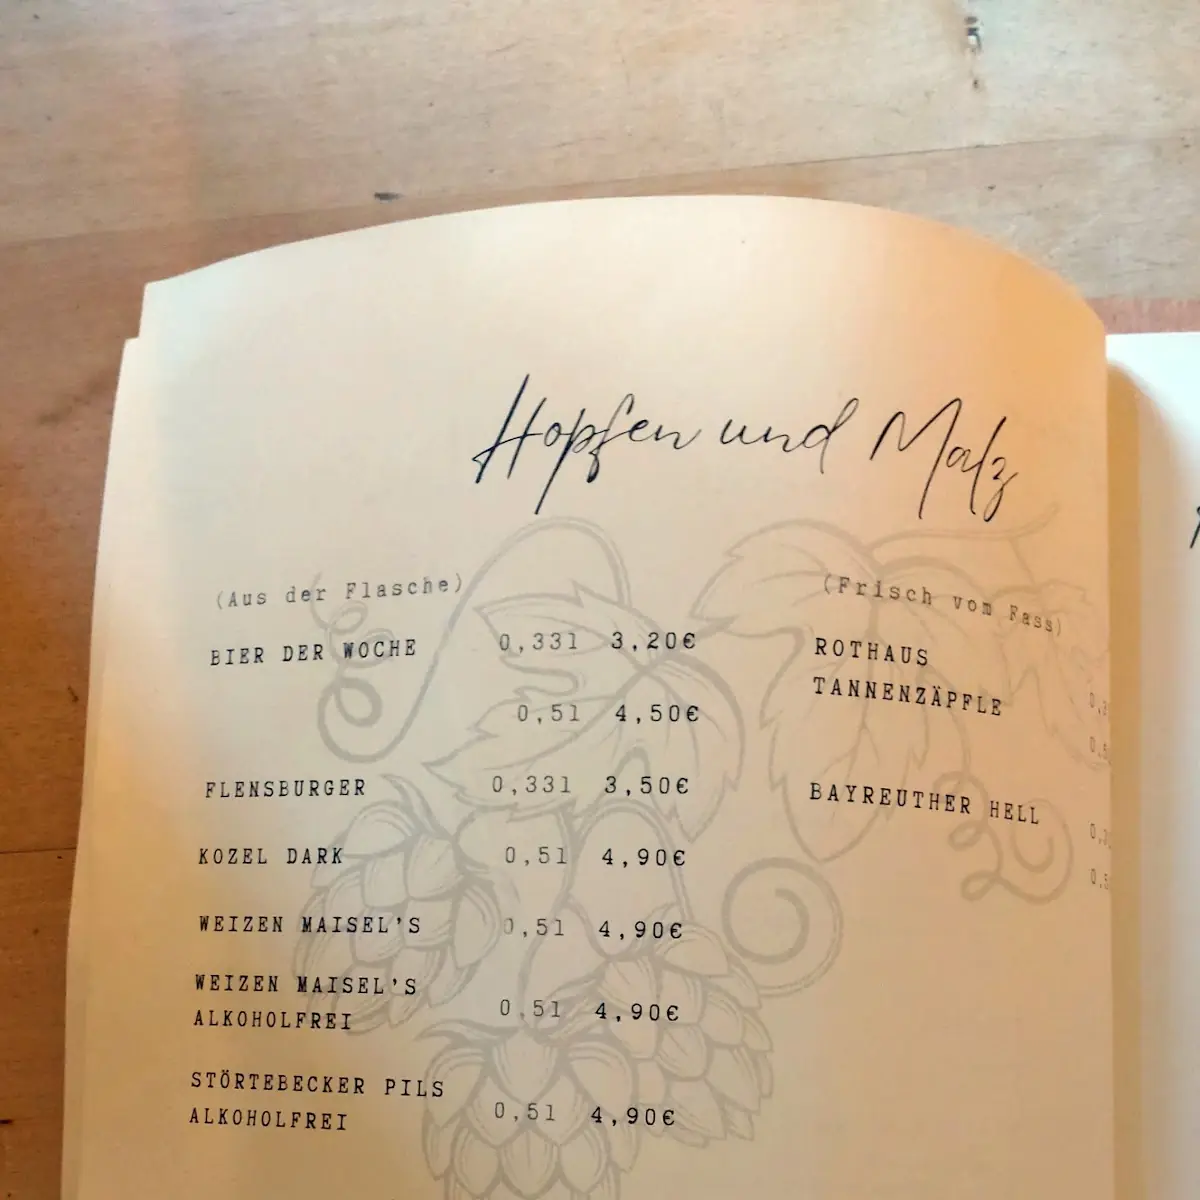 Hopfen und Malz
(Aus der Flasche)
BIER DER WOCHE 0,33l 3,20€
0,5l 4,50€
FLENSBURGER 0,33l 3,50€
KOZEL DARK 0,5l 4,90€
WEIZEN MAISEL'S 0,5l 4,90€
WEIZEN MAISEL'S
ALKOHOLFREI 0,5l 4,90€
STÖRTEBECKER PILS
ALKOHOLFREI 0,5l 4,90€
(Frisch vom Fass)
ROTHAUS
TANNENZÄPFLE
BAYREUTHER HELL